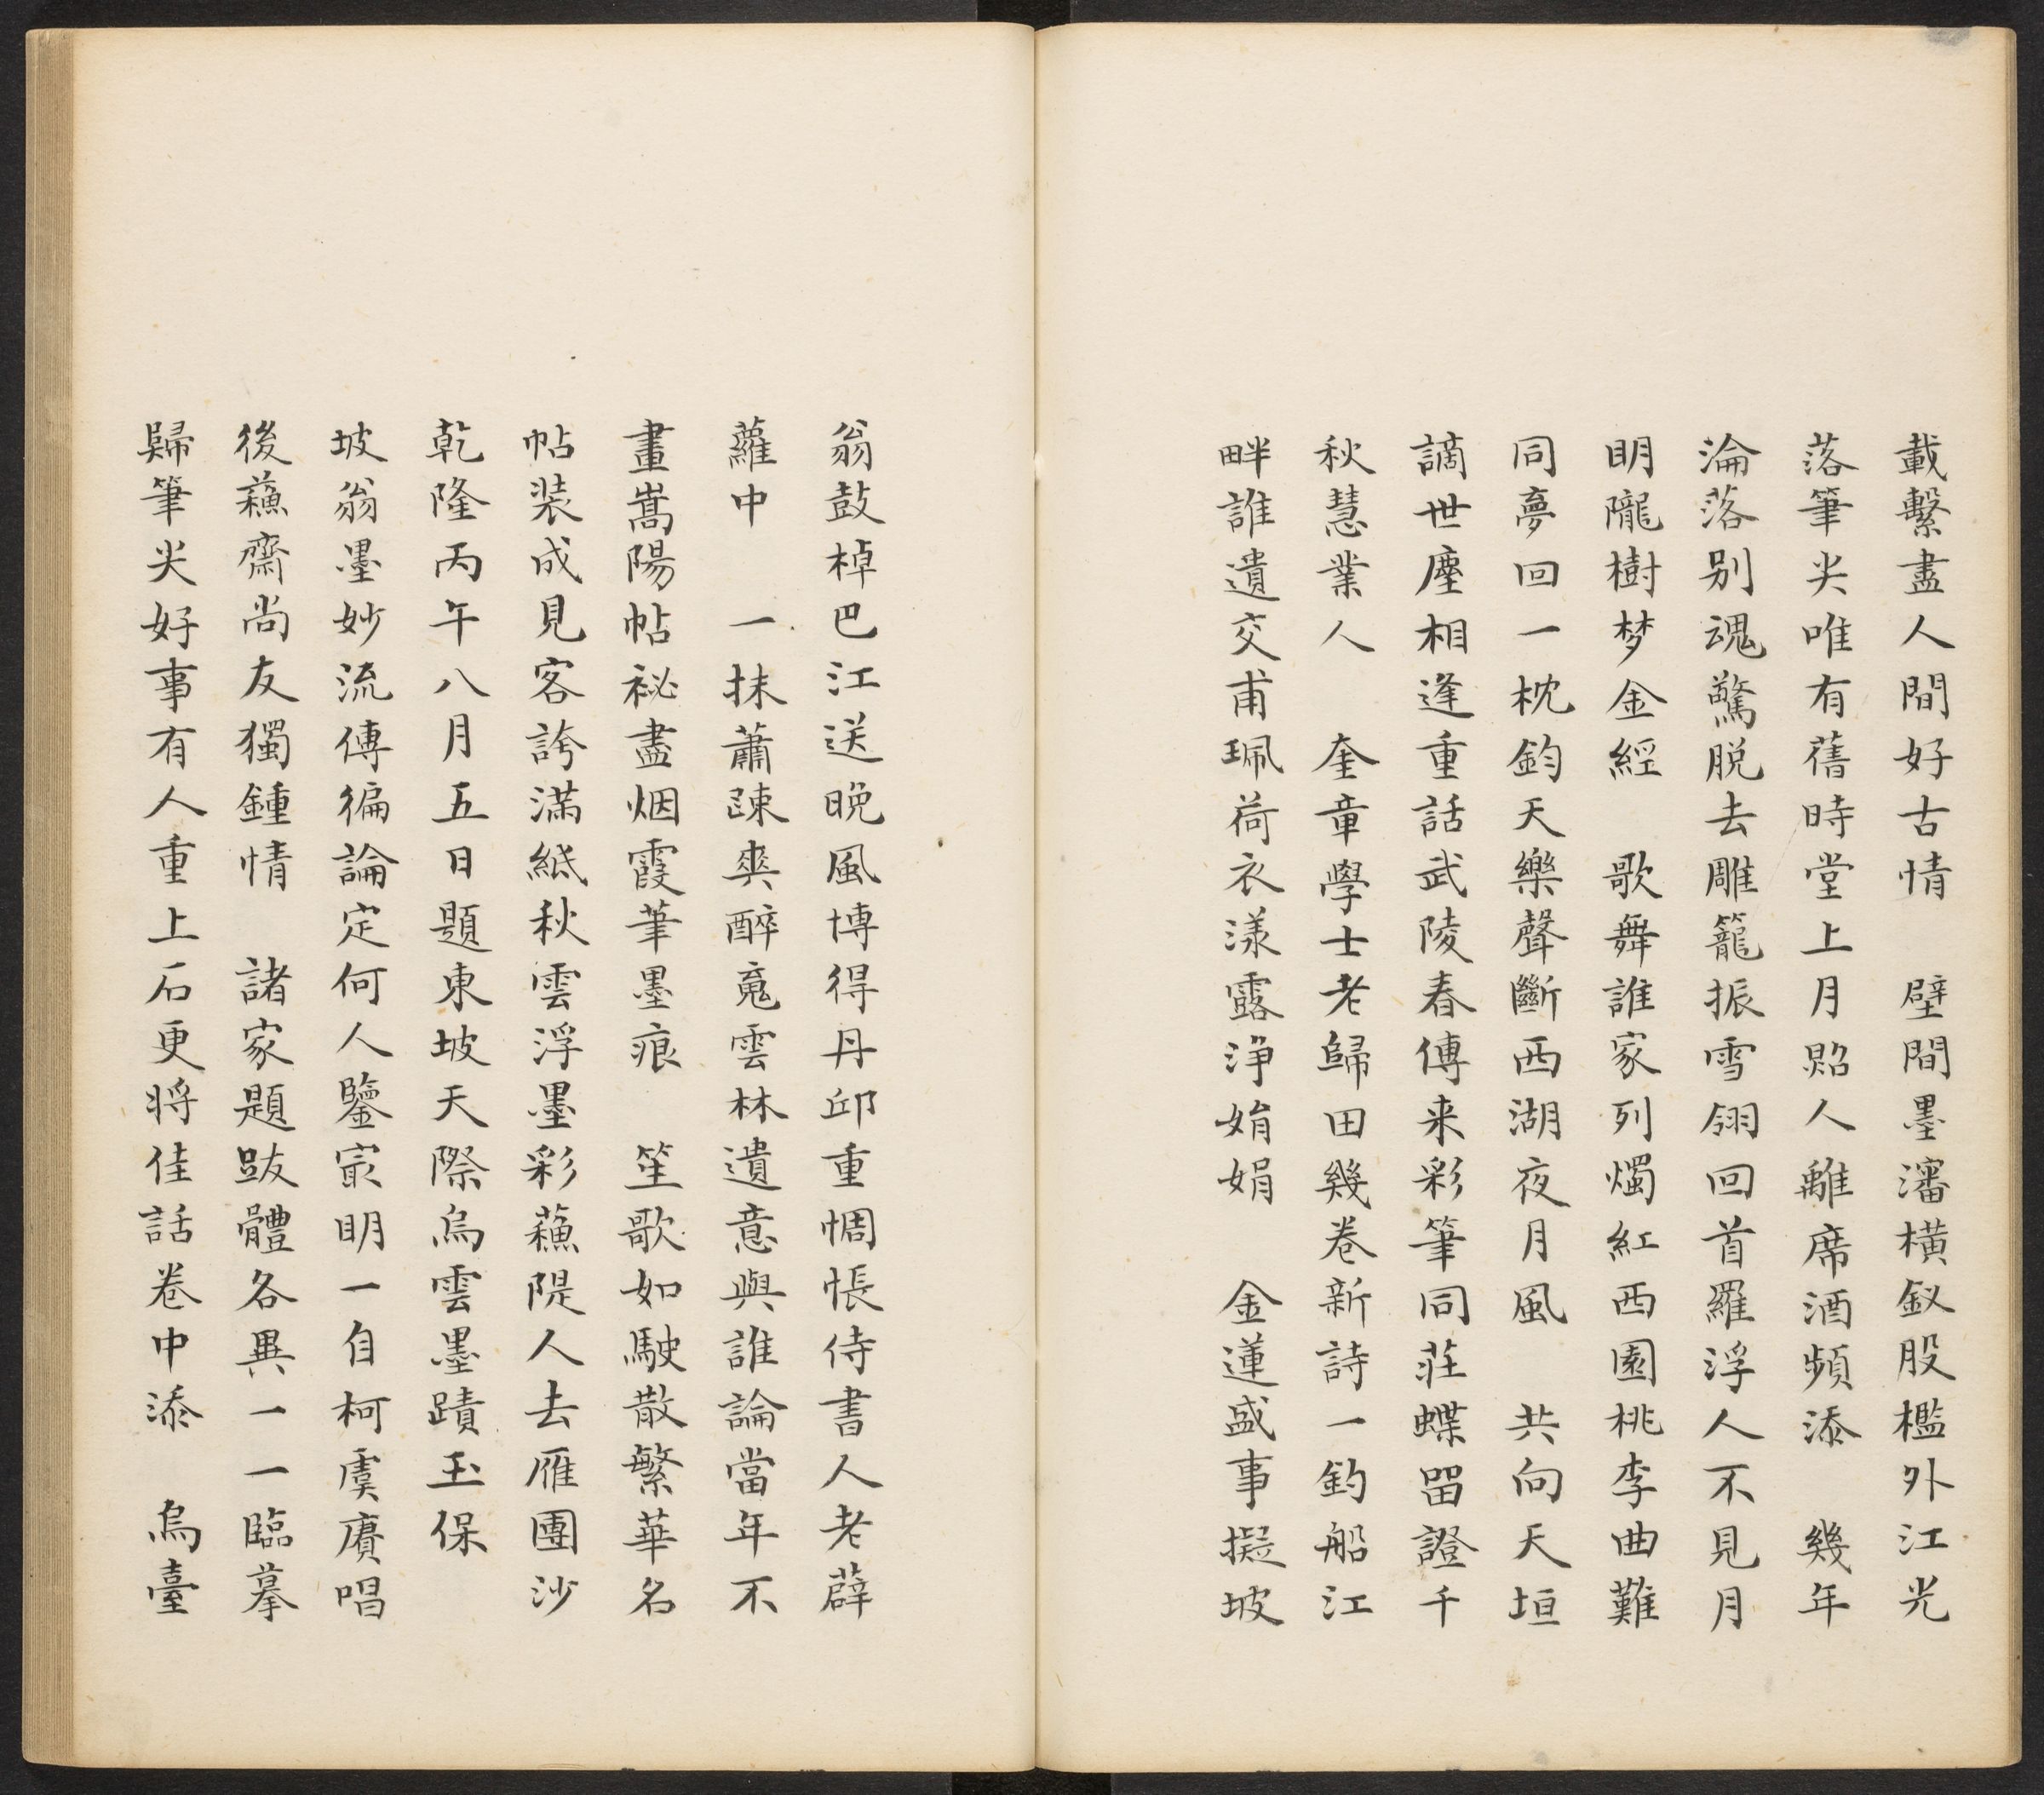 載繫盡人間好古情　壁間墨瀋橫釵股檻外江光
落筆尖唯有舊時堂上月照人離席酒頻添　幾年
淪落别魂驚脱去雕籠振雪翎回首羅浮人不見月
明隴樹梦金經　歌舞誰家列燭紅西園桃李曲難
同夢回一枕鈞天樂聲斷西湖夜月風　共向天垣
謫世塵相逢重話武陵春傳来彩筆同莊蝶畱證千
秋慧業人　奎章學士老歸田幾卷新詩一釣船江
畔誰遺交甫珮荷衣漾露浄娟娟　金蓮盛事擬坡
翁鼓棹巴江送晩風博得丹邱重惆悵侍書人老薜
蘿中　一抹蕭踈爽醉䰟雲林遺意與誰論當年不
畫嵩陽帖祕盡烟霞筆墨痕　笙歌如駛散繁華名
帖装成見客誇滿紙秋雲浮墨彩蘓隄人去雁團沙
乾隆丙午八月五日題東坡天際烏雲墨蹟玉保
坡翁墨妙流傳徧論定何人鑒㝡明一自柯虞賡唱
後蘓齋尚友獨鍾情　諸家題跋體各異一一臨摹
歸筆尖好事有人重上石更将佳話卷中添　烏臺